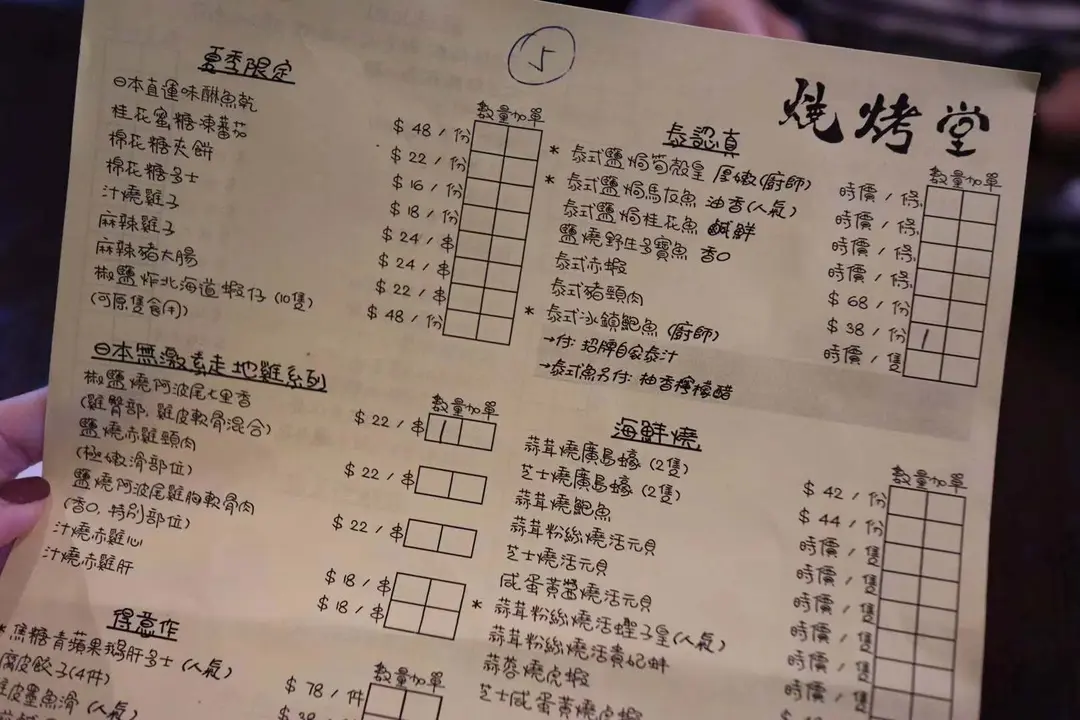 5
燒烤堂
夏季限定
數量加單
日本直運味醂魚乾 $48/份
桂花蜜糖凍蕃茄 $22/份
棉花糖夾餅 $16/份
棉花糖多士 $18/份
汁燒雞子 $24/串
麻辣雞子 $24/串
麻辣豬大腸 $22/串
椒鹽炸北海道蝦仔(10隻) $48/份
(可原隻食用)
日本無激素走地雞系列
數量加單
椒鹽燒阿波尾七里香 $22/串 1
(雞臀部, 雞皮軟骨混合)
鹽燒赤雞頸肉 $22/串
(極嫩滑部位)
鹽燒阿波尾雞胸軟骨肉 $22/串
(香口, 特別部位)
汁燒赤雞心 $18/串
汁燒赤雞肝 $18/串
得意作
數量加單
*焦糖青蘋果鵝肝多士(人氣) $78/件
腐皮餃子(4件)
皮墨魚滑(人氣)
泰認真
數量加單
*泰式鹽焗筍殼皇 厚嫩(廚師) 時價/條
*泰式鹽焗馬友魚 油香(人氣) 時價/條
泰式鹽焗桂花魚 鹹鮮 時價/條
鹽燒野生多寶魚 香口 時價/條
泰式赤蝦 $68/份
泰式豬頸肉 $38/份 1
*泰式冰鎮鮑魚(廚師) 時價/隻
→付: 招牌自家泰汁
→泰式魚另付: 柚香檸檬醋
海鮮燒
數量加單
蒜茸燒廣島蠔(2隻) $42/份
芝士燒廣島蠔(2隻) $44/份
蒜茸燒鮑魚 時價/隻
蒜茸粉絲燒活元貝 時價/隻
芝士燒活元貝 時價/隻
咸蛋黃醬燒活元貝 時價/隻
*蒜茸粉絲燒活蟶子皇(人氣) 時價/隻
蒜茸粉絲燒活貴妃蚌 時價/隻
蒜蓉燒虎蝦
芝士咸蛋黃燒虎蝦